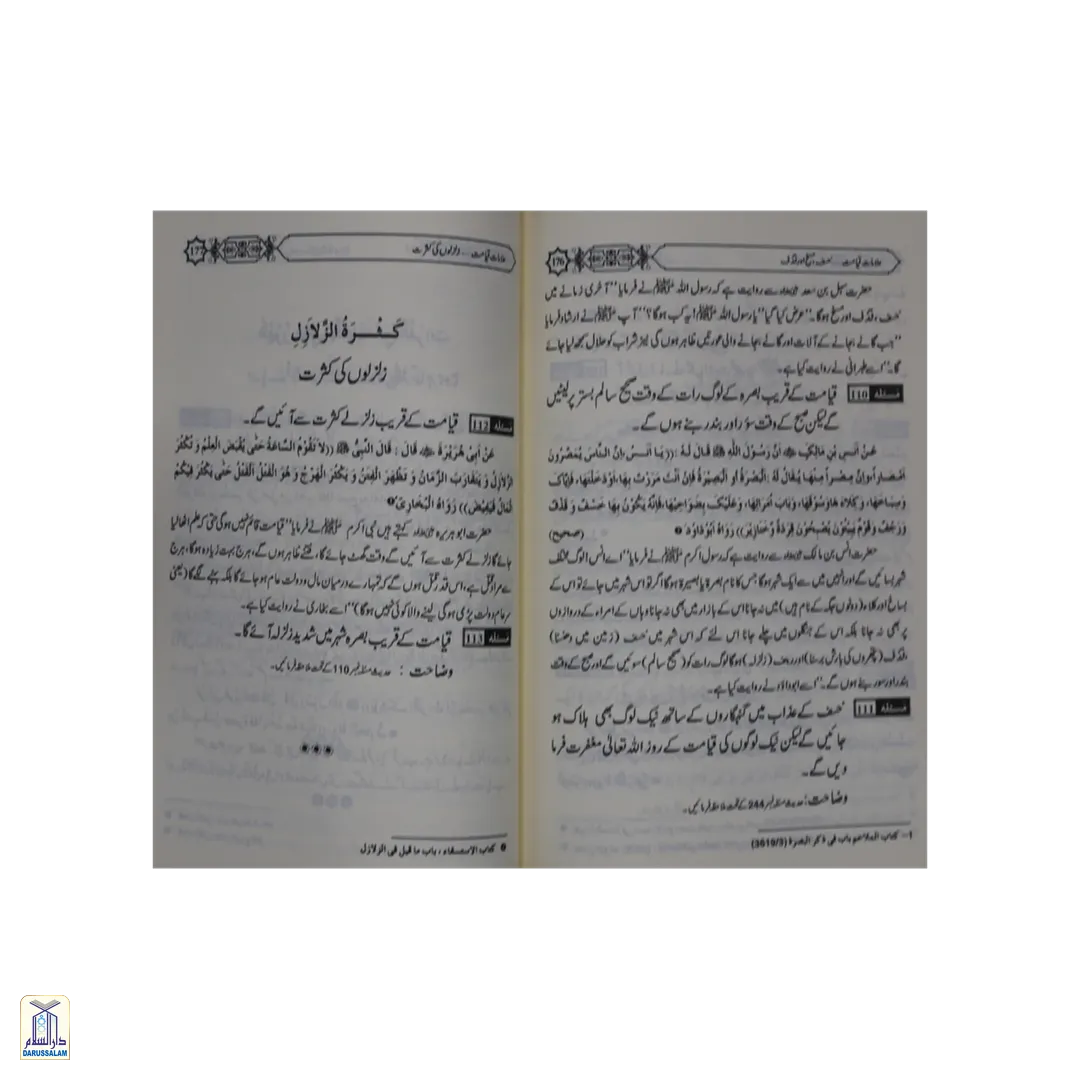 176
علامات قیامت ... خسف، مسخ اور قذف
حضرت سہل بن سعد سے روایت ہے کہ رسول اللہ ﷺ نے فرمایا ”آخری زمانے میں
خسف، قذف اور مسخ ہوگا۔“ عرض کیا گیا ”یا رسول اللہ ﷺ! یہ کب ہوگا؟“ آپ ﷺ نے ارشاد فرمایا
”جب گانے بجانے کے آلات اور گانے بجانے والی عورتیں ظاہر ہوں گی نیز شراب کو حلال سمجھ لیا جائے
گا۔“ اسے طبرانی نے روایت کیا ہے۔
مسئلہ 110 قیامت کے قریب بصرہ کے لوگ رات کے وقت صحیح سالم بستر پر لیٹیں
گے لیکن صبح کے وقت سؤر اور بندر بنے ہوں گے۔
عَنْ اَنَسِ بْنِ مَالِكٍ اَنَّ رَسُوْلَ اللّٰهِ ﷺ قَالَ لَهُ : ((يَا اَنَسُ اِنَّ النَّاسَ يُمَصِّرُوْنَ
اَمْصَارًا وَاِنَّ مِصْرًا مِنْهَا يُقَالُ لَهُ الْبَصْرَةُ اَوِ الْبُصَيْرَةُ فَاِنْ اَنْتَ مَرَرْتَ بِهَا، اَوْ دَخَلْتَهَا، فَاِيَّاكَ
وَسِبَاخَهَا، وَكِلَاءَهَا وَسُوْقَهَا، وَبَابَ اُمَرَائِهَا، وَعَلَيْكَ بِضَوَاحِيْهَا، فَاِنَّهُ يَكُوْنُ بِهَا خَسْفٌ وَ قَذْفٌ
وَرَجْفٌ وَ قَوْمٌ يَبِيْتُوْنَ يُصْبِحُوْنَ قِرَدَةً وَ خَنَازِيْرَ)) رَوَاهُ اَبُوْدَاوُدَ (صحيح)
حضرت انس بن مالک سے روایت ہے کہ رسول اکرم ﷺ نے فرمایا ”اے انس! لوگ مختلف
شہر بسائیں گے اور انہیں میں سے ایک شہر ہوگا جس کا نام بصرہ یا بصیرہ ہوگا اگر تو اس شہر میں جائے تو اس کے
سباخ اور کلاء، (دونوں جگہ کے نام ہیں) میں نہ جانا اس کے بازار میں بھی نہ جانا وہاں کے امراء کے دروازوں
پر بھی نہ جانا بلکہ اس کے جنگلوں میں چلے جانا اس لئے کہ اس شہر میں خسف (زمین میں دھنسنا)
، قذف (پتھروں کی بارش برسنا) اور رجف (زلزلہ) ہوگا لوگ رات کو (صحیح سالم) سوئیں گے اور صبح کے وقت
بندر اور سور بنے ہوں گے۔“ اسے ابوداؤد نے روایت کیا ہے۔
مسئلہ 111 خسف کے عذاب میں گنہگاروں کے ساتھ نیک لوگ بھی ہلاک ہو
جائیں گے لیکن نیک لوگوں کی قیامت کے روز اللہ تعالیٰ مغفرت فرما
دیں گے۔
وضاحت : حدیث مسئلہ نمبر 244 کے تحت ملاحظہ فرمائیں۔
1– كتاب الملاحم باب في ذكر البصرة (3619/3)
177
علامات قیامت ... زلزلوں کی کثرت
كَثْرَةُ الزَّلَازِلِ
زلزلوں کی کثرت
مسئلہ 112 قیامت کے قریب زلزلے کثرت سے آئیں گے۔
عَنْ اَبِيْ هُرَيْرَةَ قَالَ : قَالَ النَّبِيُّ ﷺ ((لَا تَقُوْمُ السَّاعَةُ حَتّٰى يُقْبَضَ الْعِلْمُ وَ تَكْثُرَ
الزَّلَازِلُ وَ يَتَقَارَبَ الزَّمَانُ وَ تَظْهَرَ الْفِتَنُ وَ يَكْثُرَ الْهَرْجُ وَ هُوَ الْقَتْلُ الْقَتْلُ حَتّٰى يَكْثُرَ فِيْكُمُ
الْمَالُ فَيَفِيْضَ)) رَوَاهُ الْبُخَارِيُّ
حضرت ابوہریرہ کہتے ہیں نبی اکرم ﷺ نے فرمایا ”قیامت قائم نہیں ہوگی حتی کہ علم اٹھا لیا
جائے گا زلزلے کثرت سے آئیں گے وقت گھٹ جائے گا، فتنے ظاہر ہوں گے، ہرج بہت زیادہ ہوگا، ہرج
سے مراد قتل ہے، اس قدر قتل ہوں گے کہ تمہارے درمیان مال و دولت عام ہو جائے گا بلکہ بہنے لگے گا (یعنی
سرعام دولت پڑی ہوگی لینے والا کوئی نہیں ہوگا)“ اسے بخاری نے روایت کیا ہے۔
مسئلہ 113 قیامت کے قریب بصرہ شہر میں شدید زلزلہ آئے گا۔
وضاحت : حدیث مسئلہ نمبر 110 کے تحت ملاحظہ فرمائیں۔
كتاب الاستسقاء ، باب ما قيل في الزلازل
دارالسلام
DARUSSALAM